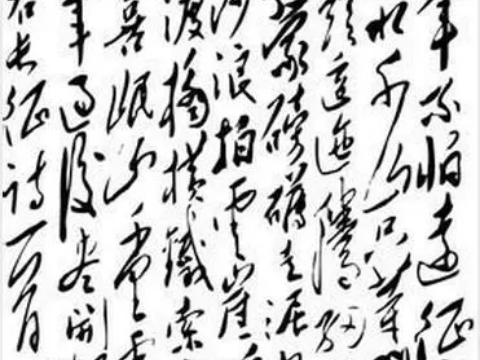 军不怕遠征
水千山只等
嶺逶迤騰細
蒙磅礴走泥
沙浪拍雲崖
渡橋横鐵索
喜岷山千里雪
軍過後盡開
右長征詩一首